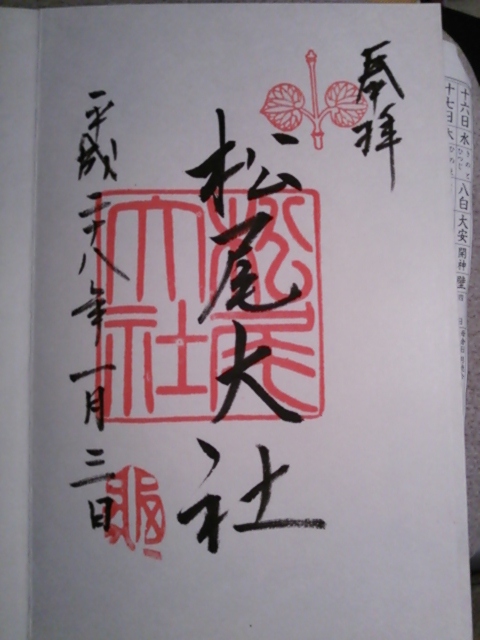 奉拝
松尾大社
松尾大社
平成二十八年一月三日
十六日 水 八白 大安 開 神 壁
十七日